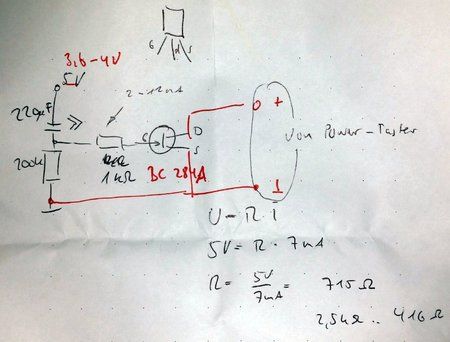 G d S
3,6-4V
5V
220µF
2-12mA
200k
1kΩ
G
D
S
BC 264A
+
von Power-Taster
U = R · I
5V = R · 7mA
R = 5V / 7mA = 715 Ω
2,5kΩ .. 416 Ω